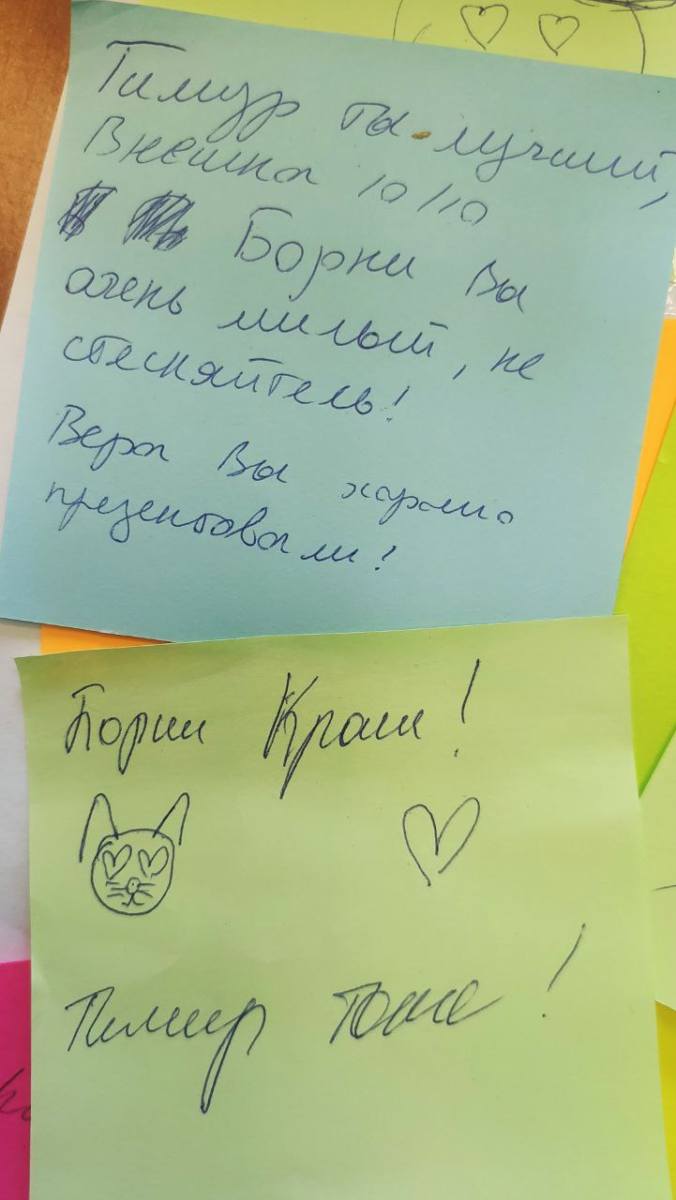 Тимур ты лучший,
Внешка 10/10
Борни Вы
очень милый, не
стесняйтесь!
Вера Вы хорошо
презентовали!
Борни Краш!
Тимур тоже!